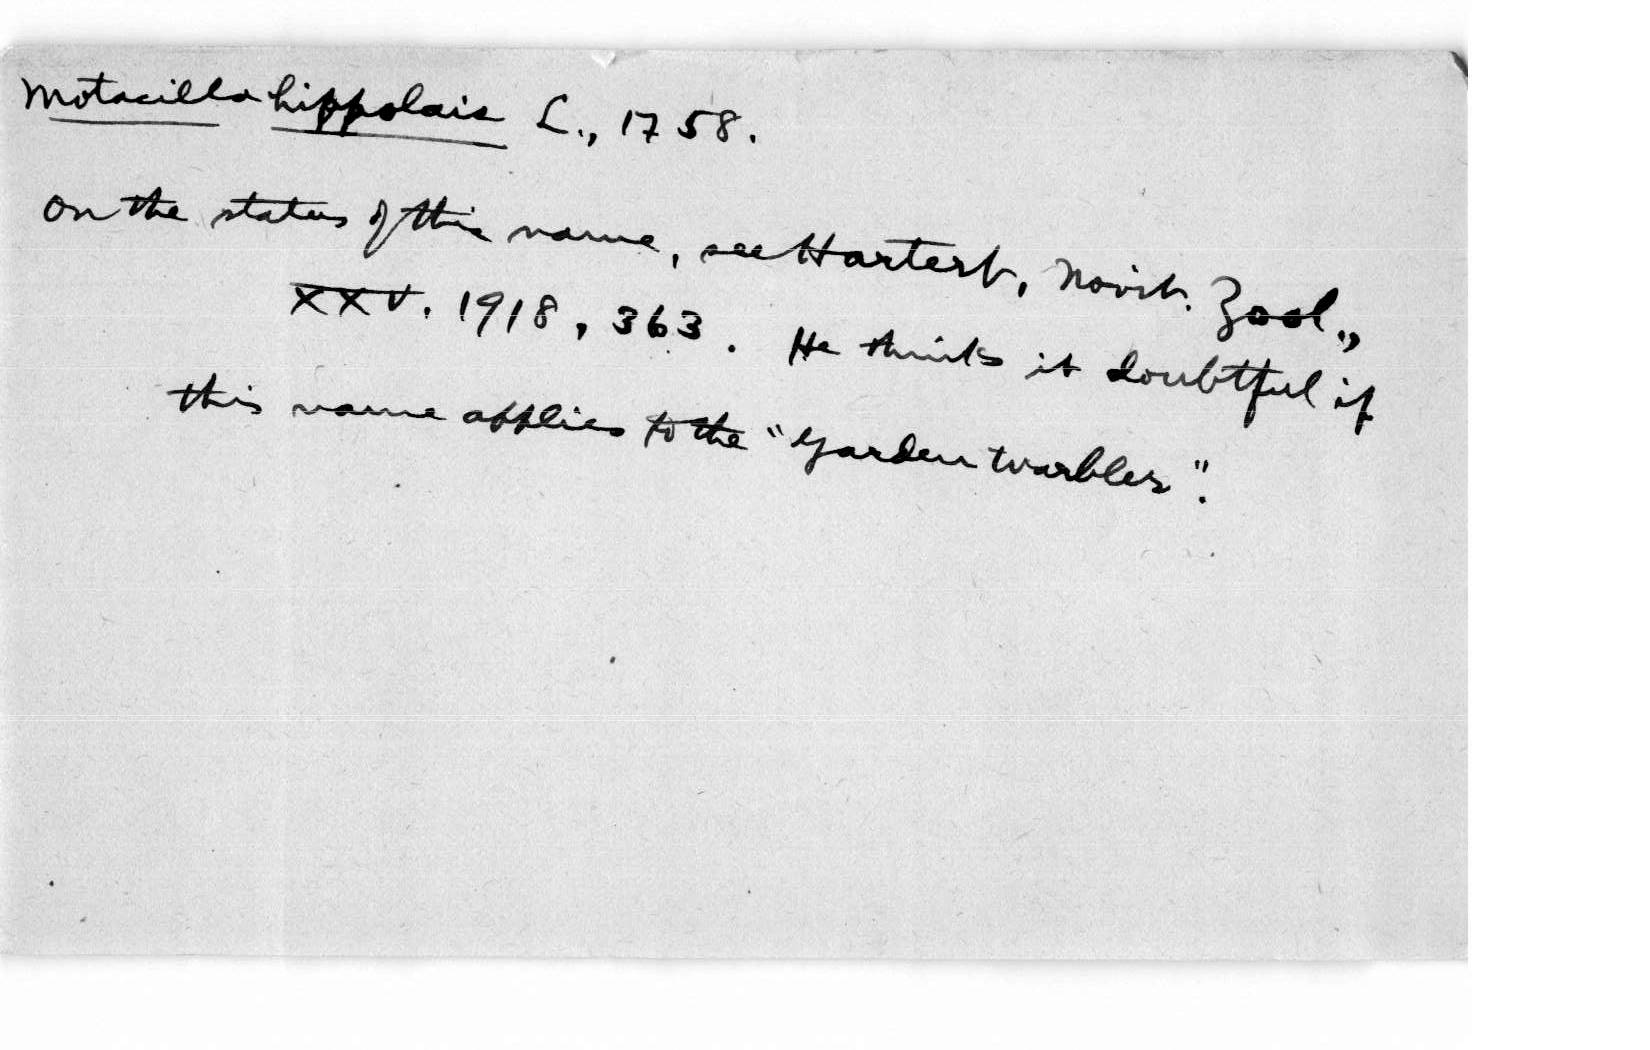 Motacilla hippolais L., 1758.
On the status of this name, see Hartert, Novit. Zool.,
XXV. 1918, 363. He thinks it doubtful if
this name applies to the "Garden Warbler".